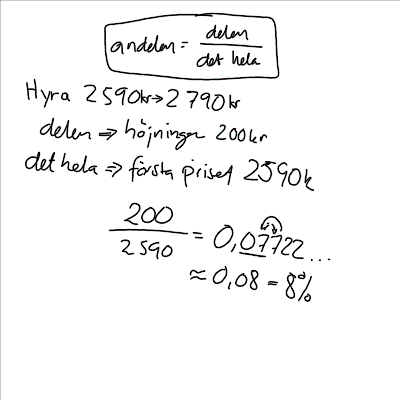 andelen = delen / det hela
Hyra 2590kr → 2790kr
delen ⇒ höjningen 200kr
det hela ⇒ första priset 2590k
200 / 2590 = 0,07722...
≈ 0,08 = 8%